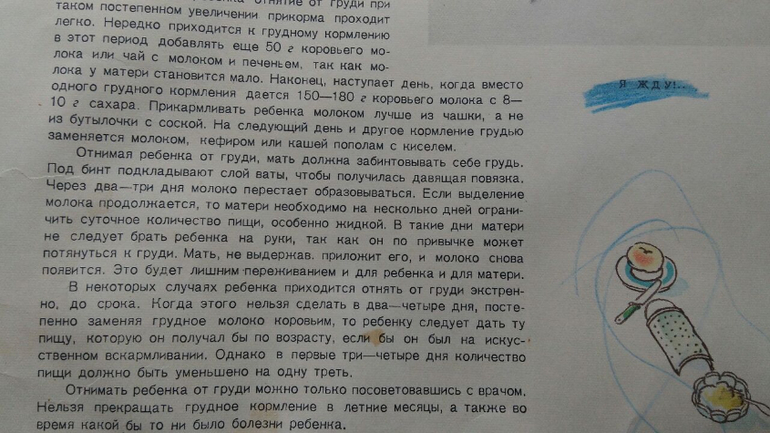 отнятие от груди при
таком постепенном увеличении прикорма проходит
легко. Нередко приходится к грудному кормлению
в этот период добавлять еще 50 г коровьего мо-
лока или чай с молоком и печеньем, так как мо-
лока у матери становится мало. Наконец, наступает день, когда вместо
одного грудного кормления дается 150—180 г коровьего молока с 8—
10 г сахара. Прикармливать ребенка молоком лучше из чашки, а не
из бутылочки с соской. На следующий день и другое кормление грудью
заменяется молоком, кефиром или кашей пополам с киселем.
Отнимая ребенка от груди, мать должна забинтовывать себе грудь.
Под бинт подкладывают слой ваты, чтобы получилась давящая повязка.
Через два—три дня молоко перестает образовываться. Если выделение
молока продолжается, то матери необходимо на несколько дней ограни-
чить суточное количество пищи, особенно жидкой. В такие дни матери
не следует брать ребенка на руки, так как он по привычке может
потянуться к груди. Мать, не выдержав, приложит его, и молоко снова
появится. Это будет лишним переживанием и для ребенка и для матери.
В некоторых случаях ребенка приходится отнять от груди экстрен-
но, до срока. Когда этого нельзя сделать в два—четыре дня, посте-
пенно заменяя грудное молоко коровьим, то ребенку следует дать ту
пищу, которую он получал бы по возрасту, если бы он был на искус-
ственном вскармливании. Однако в первые три—четыре дня количество
пищи должно быть уменьшено на одну треть.
Отнимать ребенка от груди можно только посоветовавшись с врачом.
Нельзя прекращать грудное кормление в летние месяцы, а также во
время какой бы то ни было болезни ребенка.
Я ЖДУ!..